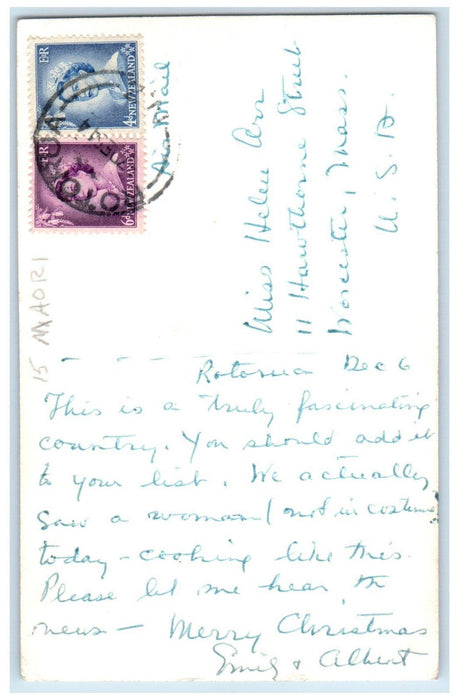 E R
4d NEW ZEALAND
E R
6d NEW ZEALAND
ROTORUA
Air Mail
Miss Helen Orr
11 Hawthorne Street
Worcester, Mass.
U. S. A.
15 MAORI
Rotorua Dec 6
This is a truly fascinating
country. You should add it
to your list. We actually
saw a woman (not in costume
today - cooking like this.
Please let me hear the
news - Merry Christmas
& Albert